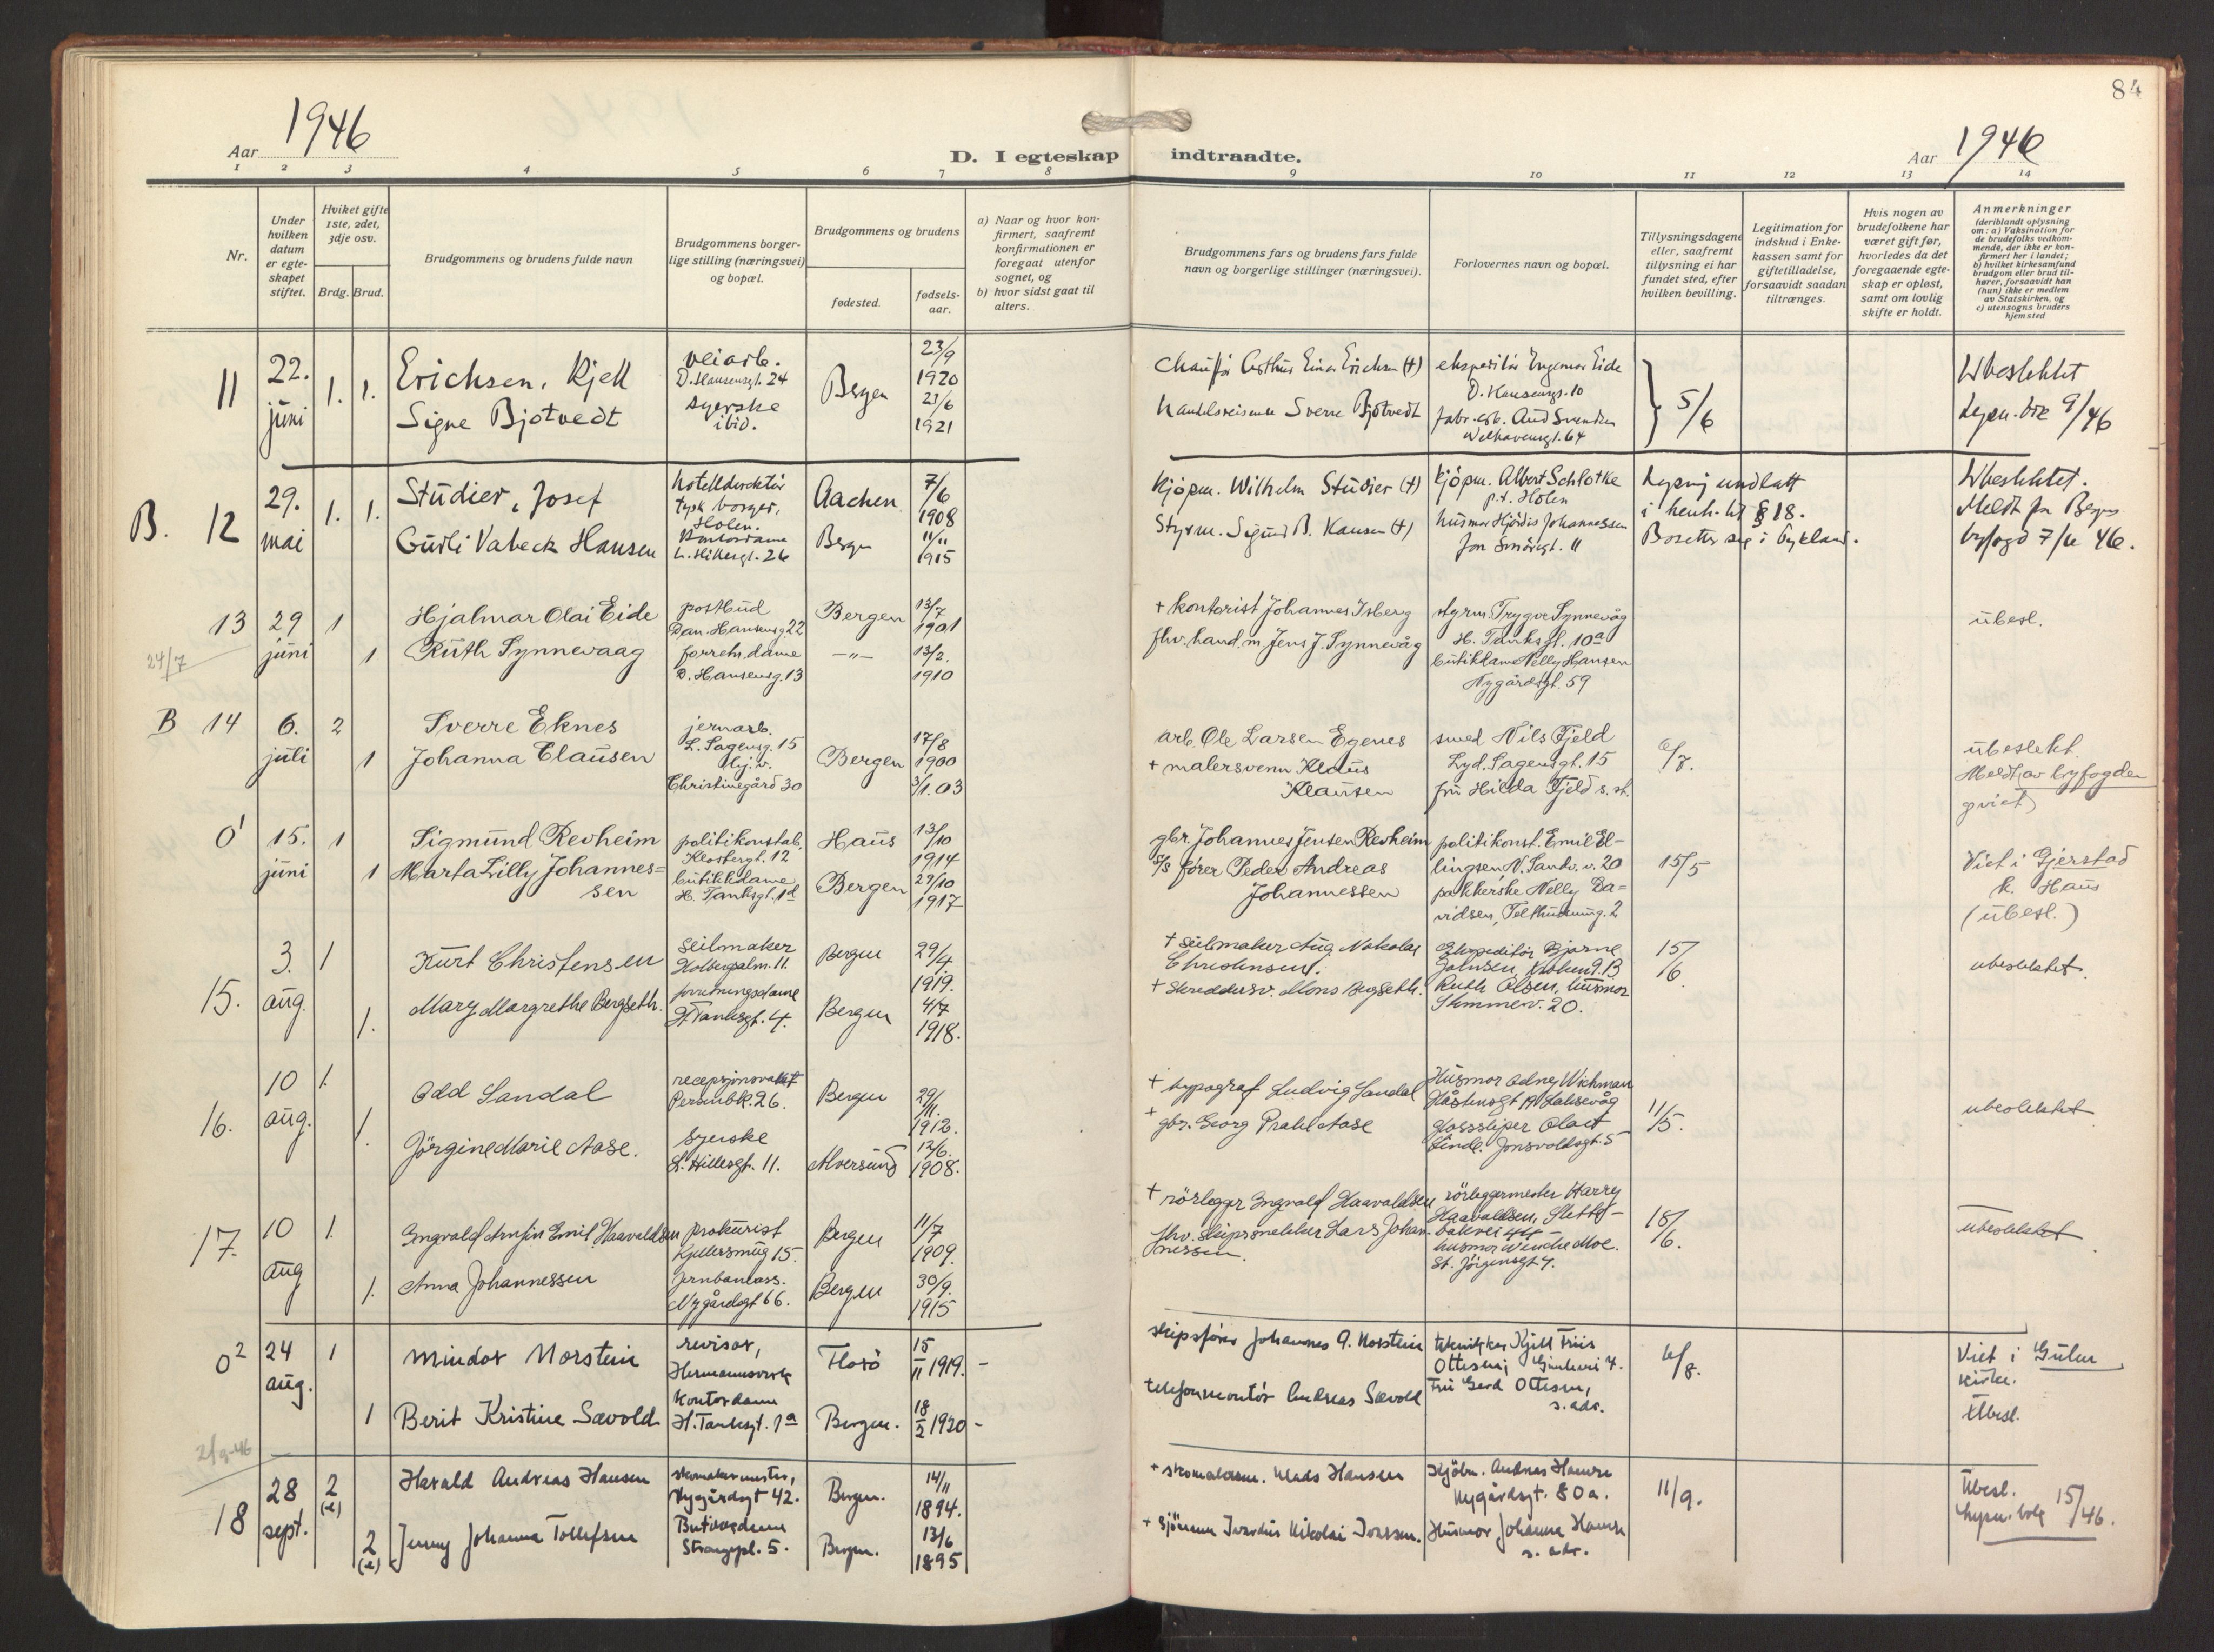 84
1946
1946
Aar
D. I egteskap indtraadte.
Aar
1 2 3 4 5 6 7 8 9 10 11 12 13 14
Nr.
Under hvilken datum er egteskapet stiftet.
Hviket gifte 1ste, 2det, 3dje osv.
Brdg. Brud.
Brudgommens og brudens fulde navn
Brudgommens borgerlige stilling (næringsvei) og bopæl.
Brudgommens og brudens
fødested.
fødselsaar.
a) Naar og hvor konfirmert, saafremt konfirmationen er foregaat utenfor sognet, og
b) hvor sidst gaat til alters.
Brudgommens fars og brudens fars fulde navn og borgerlige stillinger (næringsvei).
Forlovernes navn og bopæl.
Tillysningsdagene eller, saafremt tillysning ei har fundet sted, efter hvilken bevilling.
Legitimation for indskud i Enkekassen samt for giftetilladelse, forsaavidt saadan tiltrænges.
Hvis nogen av brudefolkene har været gift før, hvorledes da det foregaaende egteskap er opløst, samt om lovlig skifte er holdt.
Anmerkninger
(deriblandt oplysning om: a) Vaksination for de brudefolks vedkommende, der ikke er konfirmert her i landet; b) hvilket kirkesamfund brudgom eller brud tilhører, forsaavidt han (hun) ikke er medlem av Statskirken, og c) utensogns bruders hjemsted
11
22. juni
1. 1.
Erichsen, Kjell
Signe Bjotvedt
veiarb.
D. Hansensgt. 24
syerske
ibid.
Bergen
23/9 1920
23/6 1921
Einar Erichsen (+)
Sverre Bjotvedt
Ingemar Eide
D. Hansensgt. 10
Aud Svendsen
Welhavensgt. 64
5/6
Ubeslektet
9/46
B. 12
29. mai
1. 1.
Studier, Josef
Gurli Vabeck Hansen
hotelldirektör
tysk borger,
Holen.
Kontordame
L. Hillesgt. 26
Aachen
Bergen
7/6 1908
11/11 1915
kjöpm. Wilhelm Studier (+)
Styrm. Sigurd B. Hansen (+)
kjöpm. Albert Schlotke
p.t. Holen
husmor Hjördis Johannessen
Jon Smörsgt. 11
Lysning undlatt
i henh. til § 18.
Ubeslektet.
Meldt fra Bergen
byfogd 46.
13
24/7
29 juni
1 1
Hjalmar Olai Eide
Ruth Synnevaag
postbud
Dan. Hansensg. 22
forretn. dame
D. Hansensg. 13
Bergen
—"—
13/7 1901
13/2. 1910
+ kontorist Johannes Isberg
fhv. hand. m. Jens J. Synnevåg
styrm. Trygve Synnevåg
H. Tanksgt. 10a
butikdame Nelly Hansen
Nygårdsgt. 59
übesl.
B 14
6. juli
2 1
Sverre Eknes
Johanna Clausen
jernarb.
L. Sagensg. 15
hj. v.
Christinegård 30
Bergen
17/8 1900
3/1. 03
arb. Ole Larsen Egenes
+ malersvenn Klaus
Klausen
smed Nils Fjeld
Lyd. Sagensgt. 15
fru Hilda Fjeld s. st.
6/7.
übeslekt.
Meldt av byfogden
gviet
0¹
15. juni
1 1
Sigmund Revheim
Marta Lilly Johannes=
sen
politikonstab.
Klostergt. 12
butikkdame
H. Tanksgt. 1d
Haus
Bergen
13/10 1914
29/10 1917
gbr. Johannes Jensen Revheim
S/S fører Peder Andreas
Johannessen
politikonst. Emil El-
lingsen, N. Sandv. v. 20
pakkerske Nelly Da=
vidsen, Telthussmug. 2
15/5
Viet i Gjerstad
k. Haus
(übesl.)
15.
3. aug.
1 1.
Kurt Christensen
Mary Margrethe Bergseth.
Seilmaker
Holbergsalm. 11.
forretningsdame
H. Tanksgt. 4.
Bergen
Bergen
29/4 1919.
4/7 1918.
+ Seilmaker Aug. Nikolai
Christensen.
+ Skreddersv. Mons Bergseth.
Ekspeditör Bjarne
Johnsen,
Ruth Olsen, husmor
20.
15/6
ubeslektet.
16.
10 aug.
1. 1.
Odd Sandal
Jörgine Marie Aase.
recepsjonsvakt
26.
Syerske
L. Hillesgt. 11.
Bergen
Alversund
29/11. 1912.
12/6. 1908.
+ typograf Ludvig Sandal
+ gbr. Georg Prahl Aase
Husmor Wichman
Laksevåg
Olav
Jonsvollsgt. 5
11/5.
ubeslektet
17.
10 aug
1. 1.
Ingvald Arnfin Emil Haavaldsen
Anna Johannessen
prokurist
Kjellersmug 15.
Jernbaneass.
Nygårdsgt 66.
Bergen
Bergen
11/7 1909.
30/9. 1915
+ rörlegger Ingvald Haavaldsen
fhv. skipssnekker Lars Johan-
nessen.
rörleggermester Harry
Haavaldsen, Slette-
bakvei 44
husmor Wenche Moe.
St. Jörgensgt 7.
18/6.
ubeslektet
0²
24 aug.
1 1
Mindor Norstein
Berit Kristine Sævold
revisor,
Hermansverk
Kontordame
H. Tanksgt. 1a
Florö
Bergen.
15/11 1919. -
18/2 1920 -
skipsförer Johannes A. Norstein
telefonmontör Andreas Sævold
tekniker Kjell Friis
Ottesen,
Fru Gerd Ottesen,
s. adr.
6/8.
Viet i Gulen
kirke.
Ubesl.
2/9-46
18
28 sept.
2 2
Harald Andreas Hansen
Jenny Johanna Tollefsen
skomakermester,
Nygårdsgt 42.
Butikkdame
Strangepl. 5.
Bergen.
Bergen.
14/11 1894.
13/6 1895
+ skomakerm. Mads Hansen
+ Sjömann Nikolai
Kjöbm. Andreas
Nygårdsgt. 80a.
Husmor Johanna
s. adr.
11/9.
Ubesl.
15/46.